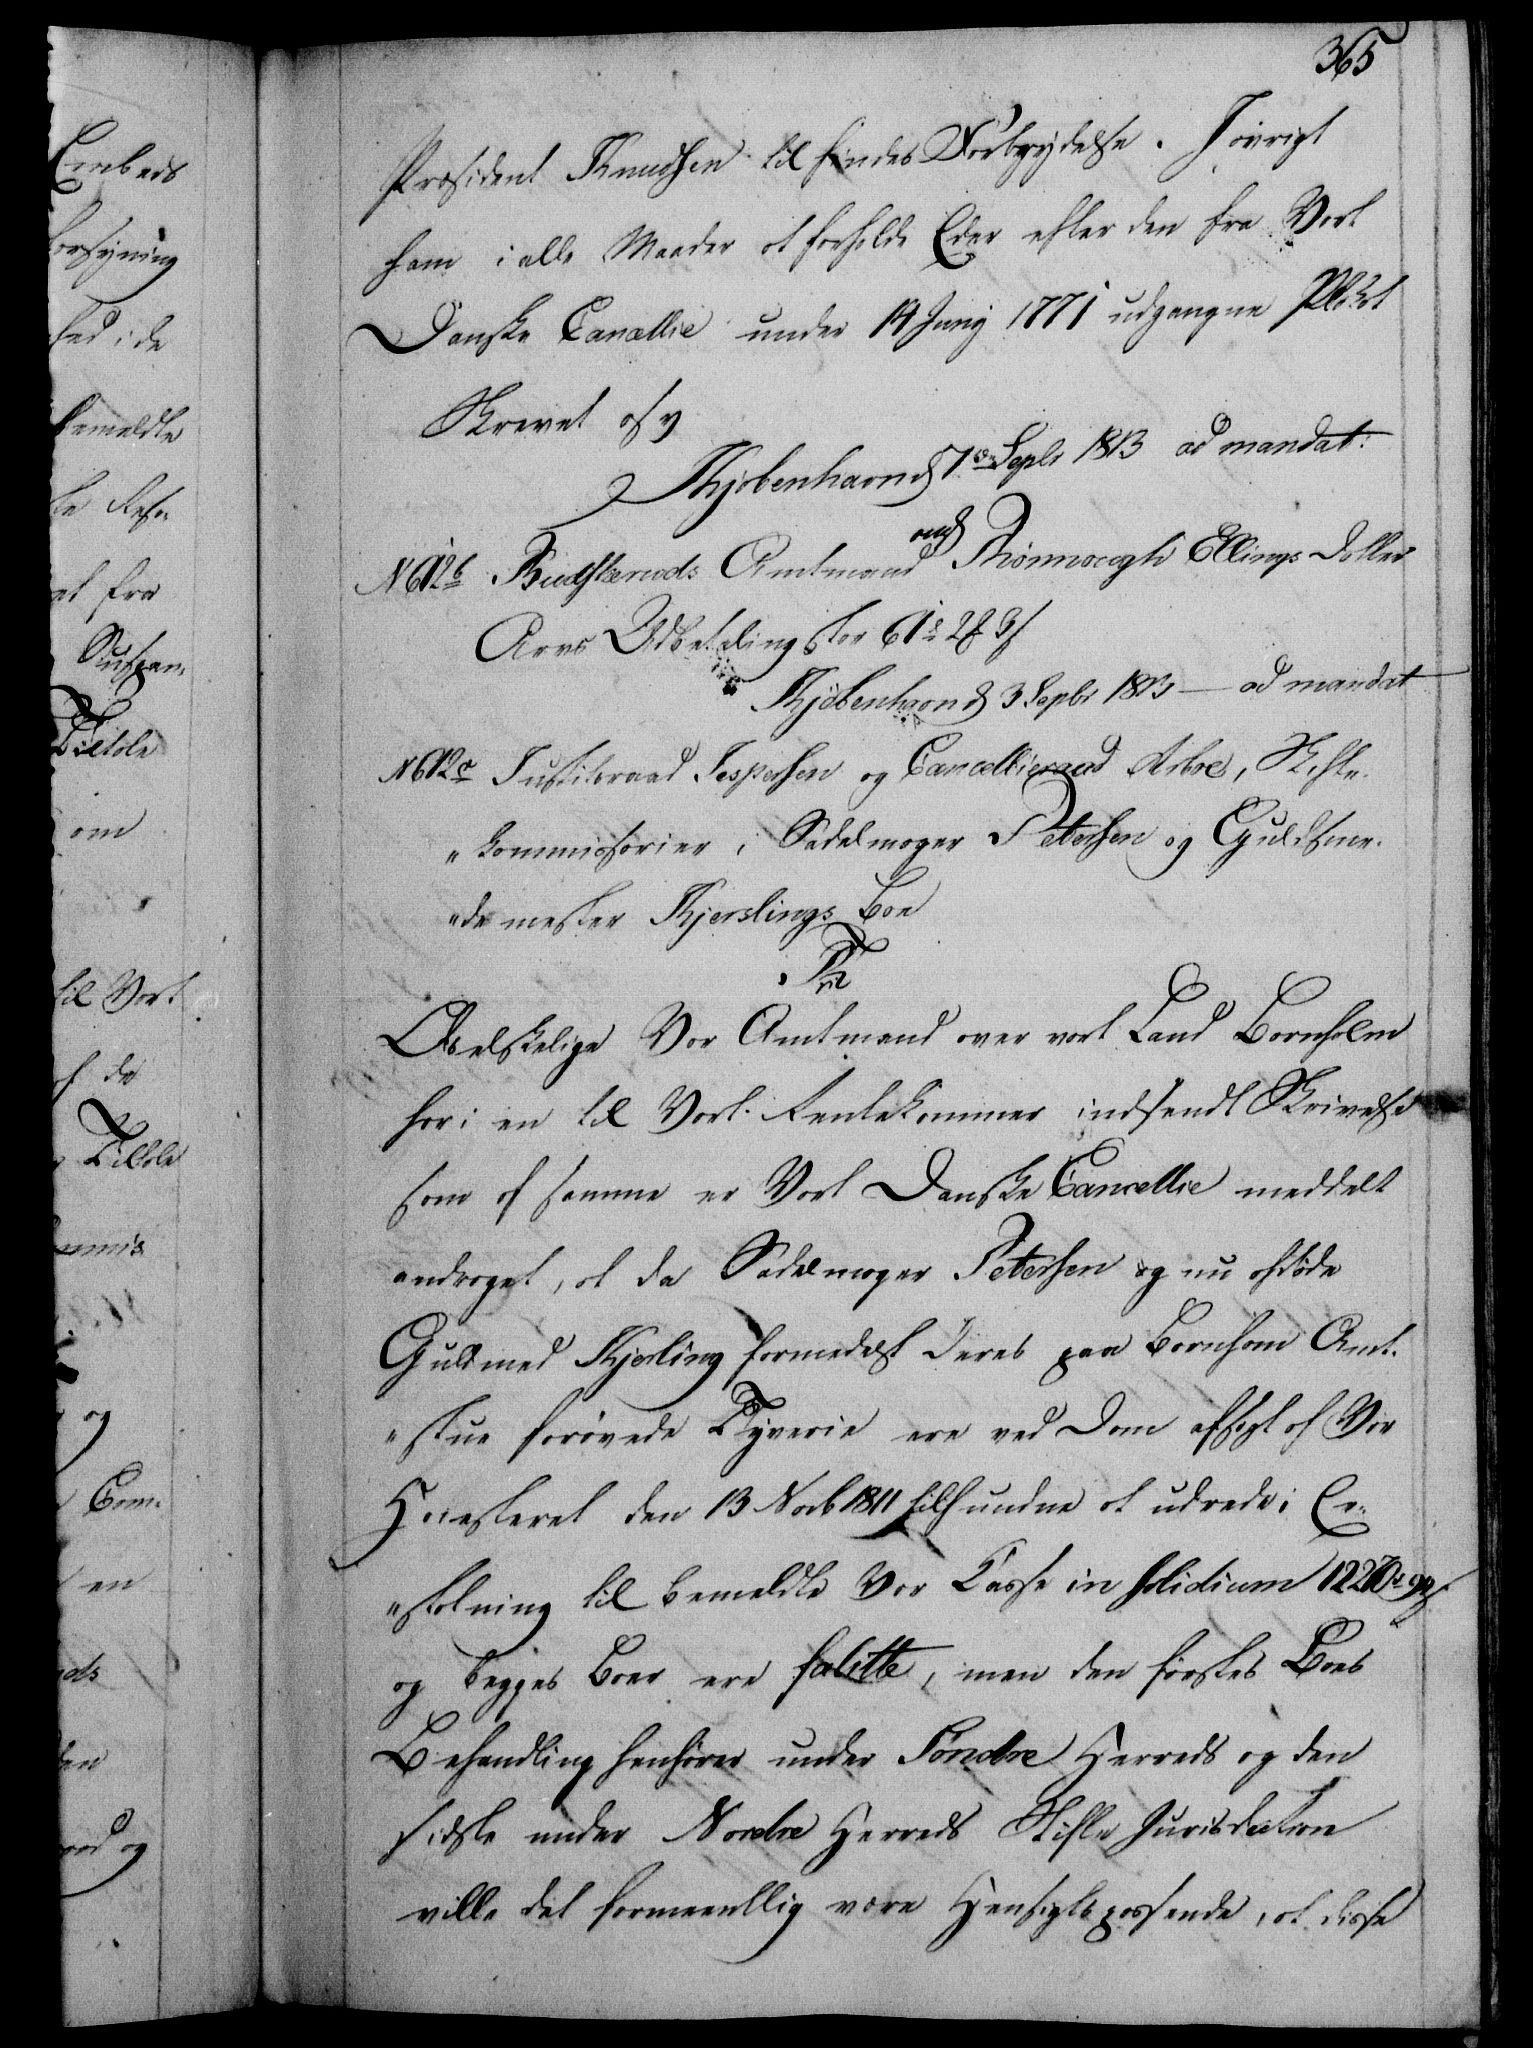 365
Præsident Knudsen til hendes Forbrydelse. I øvrigt
ham i alle Maader at forholde Eder efter den fra Vort
Danske Cancellie under 14 Junij 1771 udgangne Plakat
Skrevet osv
Kjøbenhavn d 7de Septr 1813 ad mandat:
N 612b Budskeruds Amtmand Ellings Datter
Arvs Udbetaling stor 61
Kjøbenhavn d 3 Septr 1813 — ad mandat
N 612c Justitsraad Jespersen og Cancellieraad Arboe, Skifte-
"kommissarier i Sadelmager Petersen og Guldsme-
"demester Kjerslings Boe
Os elskelige Vor Amtmand over vort Land Bornholm
har i en til Vort Rentekammer indsendt Skrivelse
som af samme er Vort Danske Cancellie meddelt
andraget, at da Sadelmager Petersen og nu afdøde
Guldsmed Kjerling formedelst deres paa Bornhom Amt-
"stue forøvede Tyverie ere ved Dom afsagt af Vor
Høiesteret den 13 Novb 1811 tilfundne at udrede i Er-
"statning til bemeldte Vor Casse in solidium
og begges Boer ere falitte, men den førstes Boes
Behandling henhører under Søndre Herreds og den
sidste under Nordre Herreds Skifte Jurisdiction
ville det formeentlig være Hensigtspassende, at disse
Embeds
forsyning
hed i de
bemeldte
at fra
Suspen-
om
til Vort
af de
og
Com-
en